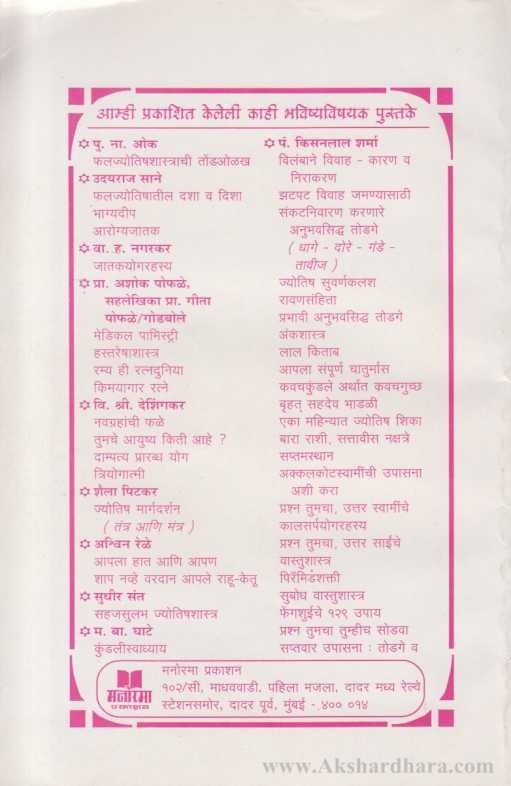 आम्ही प्रकाशित केलेली काही भविष्यविषयक पुस्तके
✡ पु. ना. ओक
फलज्योतिषशास्त्राची तोंडओळख
✡ उदयराज साने
फलज्योतिषातील दशा व दिशा
भाग्यदीप
आरोग्यजातक
✡ वा. ह. नगरकर
जातकयोगरहस्य
✡ प्रा. अशोक पोफळे,
सहलेखिका प्रा. गीता
पोफळे/गोडबोले
मेडिकल पामिस्ट्री
हस्तरेषाशास्त्र
रम्य ही रत्नदुनिया
किमयागार रत्ने
✡ वि. श्री. देशिंगकर
नवग्रहांची फळे
तुमचे आयुष्य किती आहे ?
दाम्पत्य प्रारब्ध योग
त्रियोगात्मी
✡ शैला पिटकर
ज्योतिष मार्गदर्शन
( तंत्र आणि मंत्र )
✡ अश्विन रेळे
आपला हात आणि आपण
शाप नव्हे वरदान आपले राहू-केतू
✡ सुधीर संत
सहजसुलभ ज्योतिषशास्त्र
✡ म. बा. घाटे
कुंडलीस्वाध्याय
✡ पं. किसनलाल शर्मा
विलंबाने विवाह - कारण व
निराकरण
झटपट विवाह जमण्यासाठी
संकटनिवारण करणारे
अनुभवसिद्ध तोडगे
( धागे - दोरे - गंडे -
तावीज )
ज्योतिष सुवर्णकलश
रावणसंहिता
प्रभावी अनुभवसिद्ध तोडगे
अंकशास्त्र
लाल किताब
आपला संपूर्ण चातुर्मास
कवचकुंडले अर्थात कवचगुच्छ
बृहत् सहदेव भाडळी
एका महिन्यात ज्योतिष शिका
बारा राशी, सत्तावीस नक्षत्रे
सप्तमस्थान
अक्कलकोटस्वामींची उपासना
अशी करा
प्रश्न तुमचा, उत्तर स्वामींचे
कालसर्पयोगरहस्य
प्रश्न तुमचा, उत्तर साईंचे
वास्तुशास्त्र
पिरॅमिडशक्ती
सुबोध वास्तुशास्त्र
फेंगशुईचे १२९ उपाय
प्रश्न तुमचा तुम्हीच सोडवा
सप्तवार उपासना : तोडगे व
मनोरमा
प्रकाशन
मनोरमा प्रकाशन
१०२/सी, माधववाडी, पहिला मजला, दादर मध्य रेल्वे
स्टेशनसमोर, दादर पूर्व, मुंबई - ४०० ०१४
www.Akshardhara.com